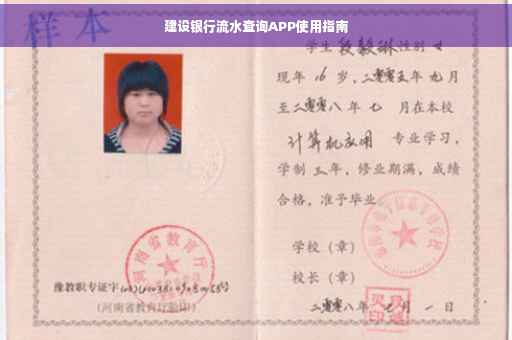 建设银行流水查询APP使用指南
样本
学生段毅琳性别女
现年16岁,二零零五年九月
至二零零八年七月在本校
计算机应用 专业学习,
学制三年,修业期满,成绩
合格,准予毕业
学校(章)
校长(章)
二零零八年七月一日
河南省教育厅
豫教职专证字
(河南省教育厅验印)